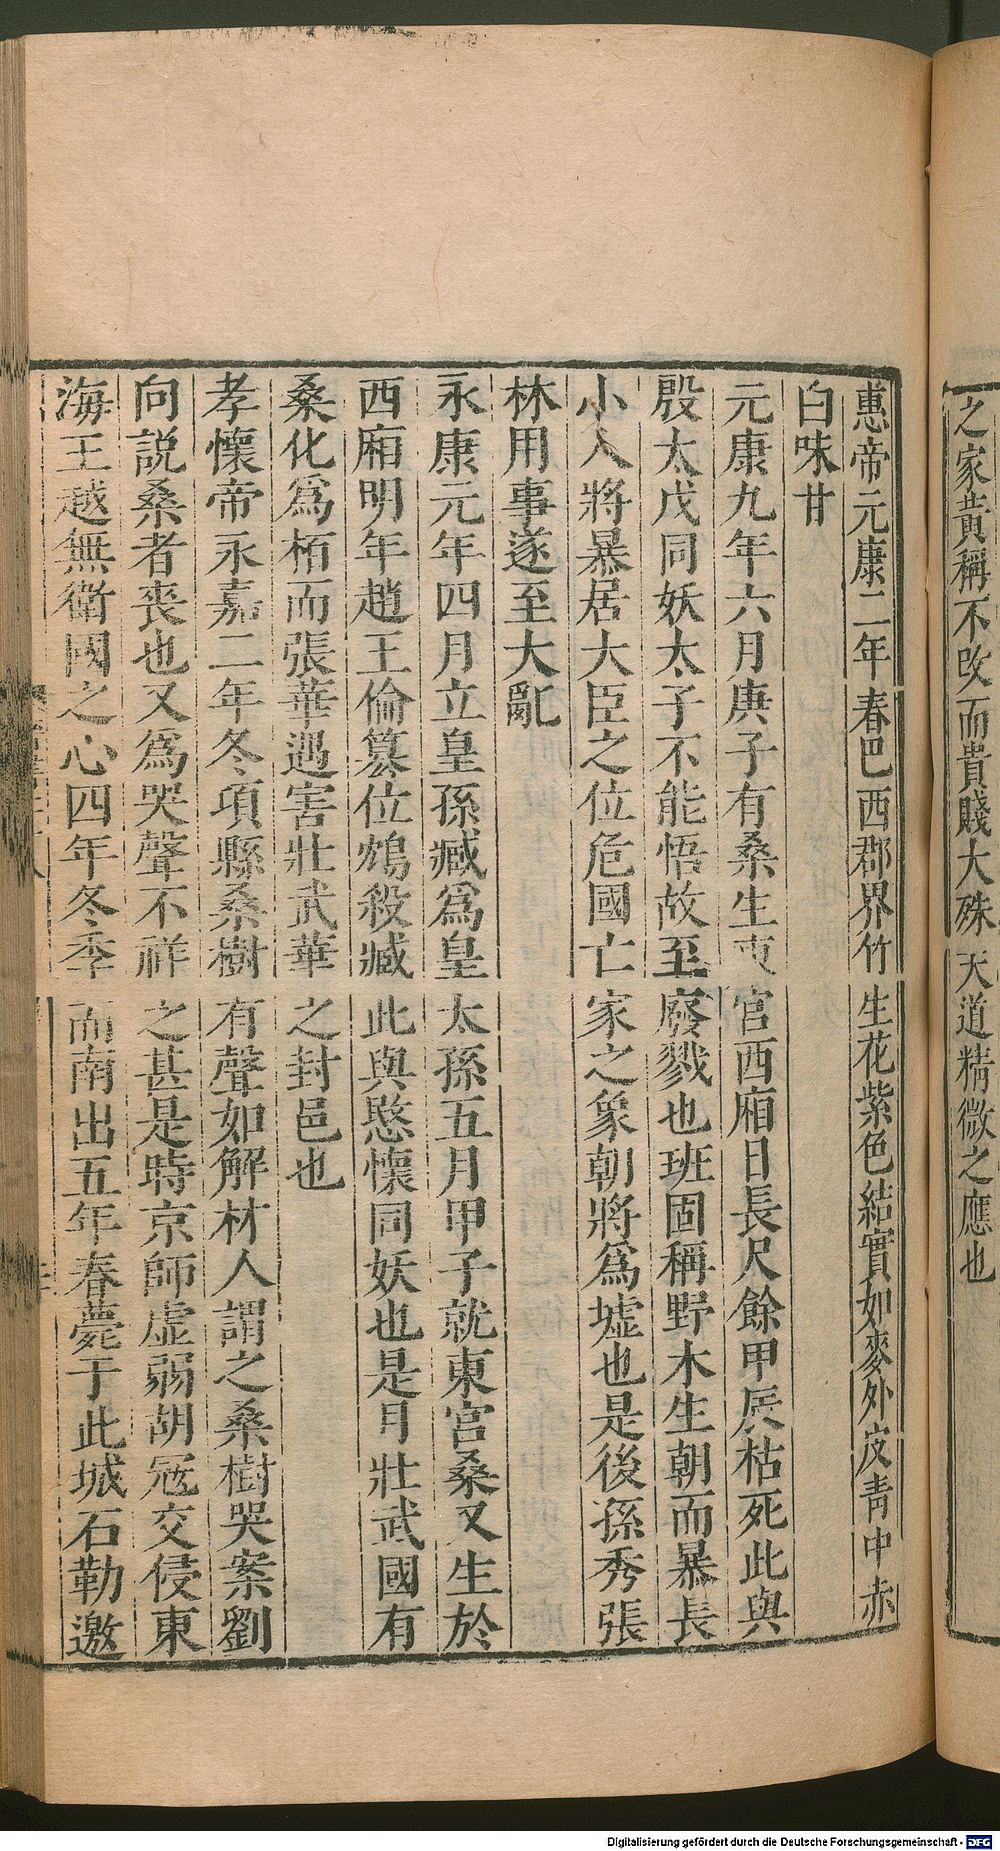 之家黄稱不改而貴賤大殊天道精微之應也
惠帝元康二年春巴西郡界竹生花紫色結實如麥外皮青中赤
白味甘
元康九年六月庚子有桑生東宮西廂日長尺餘甲辰枯死此與
殷太戊同妖太子不能悟故至廢戮也班固稱野木生朝而暴長
小人將暴居大臣之位危國亡家之象朝將爲墟也是後孫秀張
林用事遂至大亂
永康元年四月立皇孫臧爲皇太孫五月甲子就東宮桑又生於
西廂明年趙王倫篡位鴆殺臧此與愍懷同妖也是月壯武國有
桑化爲栢而張華遇害壯武華之封邑也
孝懷帝永嘉二年冬項縣桑樹有聲如解材人謂之桑樹哭案劉
向説桑者喪也又爲哭聲不祥之甚是時京師虛弱胡寇交侵東
海王越無衛國之心四年冬季而南出五年春薨于此城石勒邀
Digitalisierung gefördert durch die Deutsche Forschungsgemeinschaft - DFG